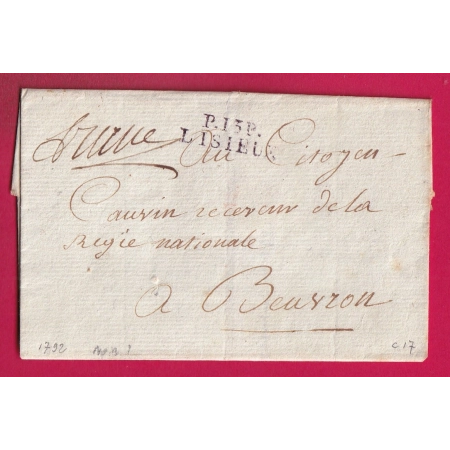 P.13P.
LISIEUX
Au Citoyen
Cauvin receveur de la
Regie nationale
a Beuvron
1792
c.17